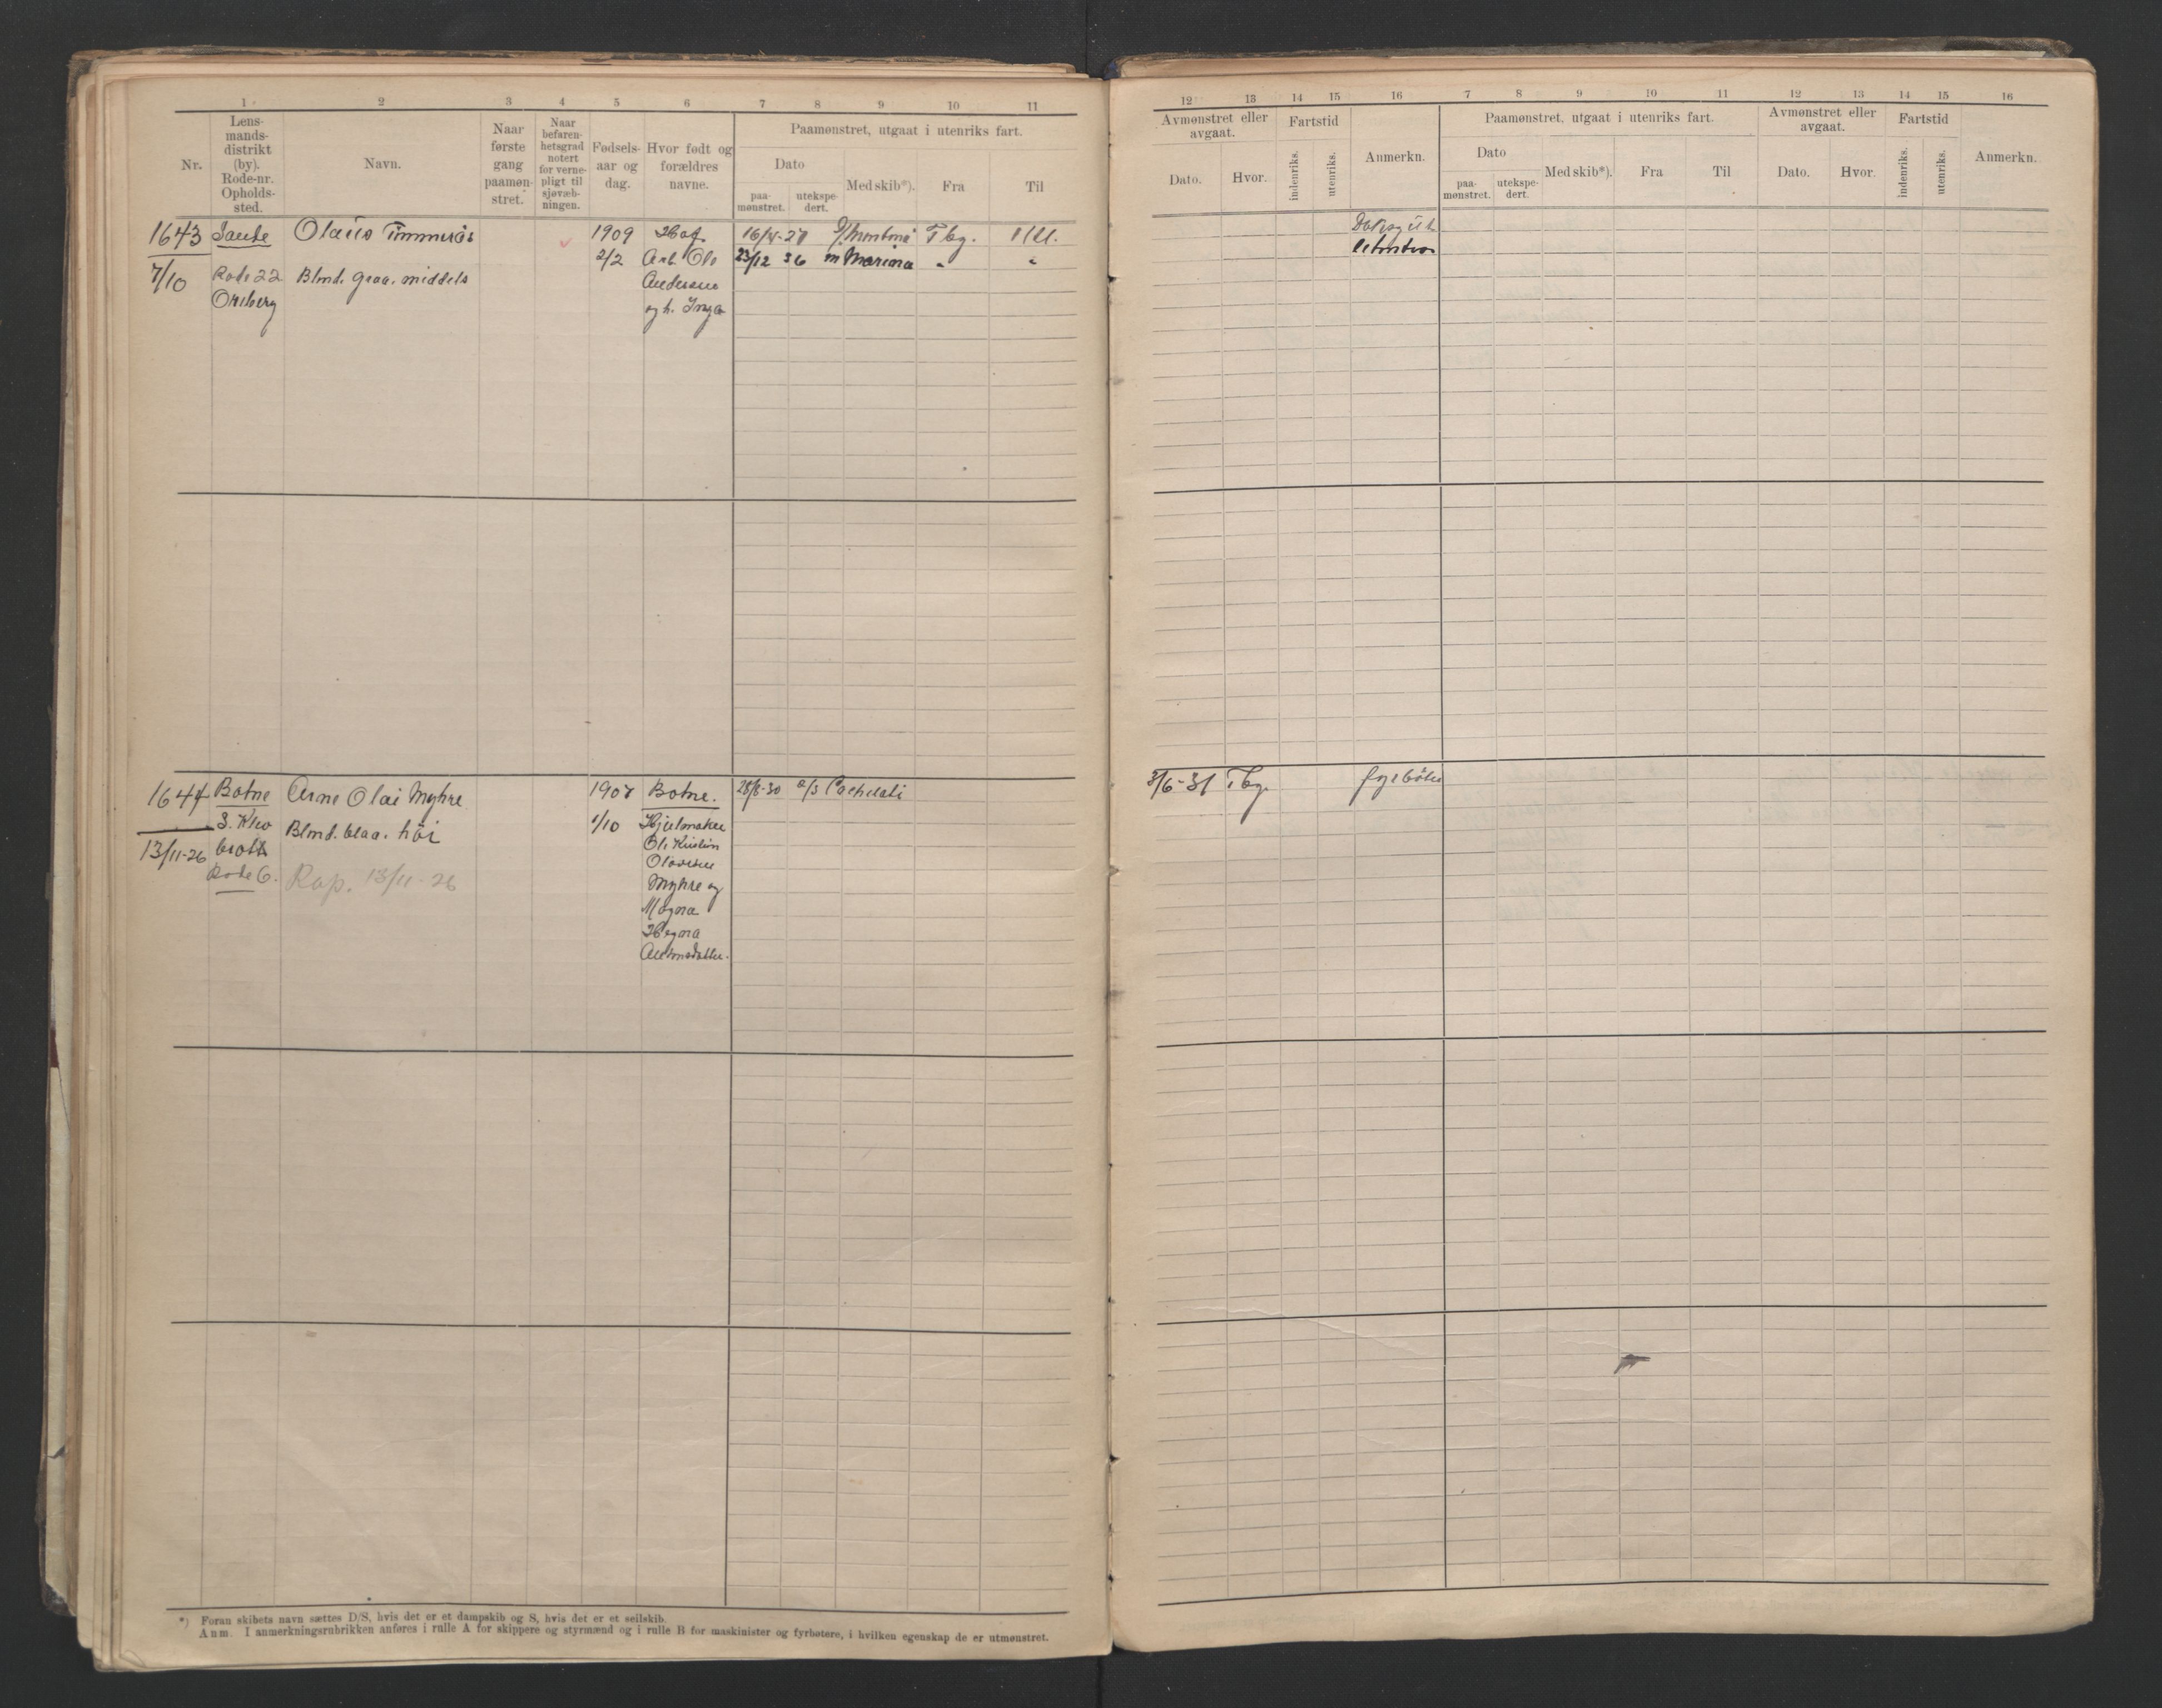 1 2 3 4 5 6 7 8 9 10 11
Nr.
Lens-
mands-
distrikt
(by).
Rode-nr.
Opholds-
sted.
Navn.
Naar
første
gang
paamøn-
stret.
Naar
befaren-
hetsgrad
notert
for verne-
pligt til
sjøvæb-
ningen.
Fødsels-
aar og
dag.
Hvor født og
forældres
navne.
Paamønstret, utgaat i utenriks fart.
Dato
paa-
mønstret.
utekspe-
dert.
Med skib*).
Fra
Til
1643 Sande Olaus 1909 Hof 16/4-27 Tbg.
7/10 Rode 22 Blmd. graa. middels 2/2 Arb. Ole 23/12 36 m Marina "
Andersen
og h. Inga
1644 Botne Arne Olai Myhre 1907 Botne. 28/6-30
13/11-26 Blmd. blaa. höi 1/10 Hjulmaker
Rode 6. Rap. 13/11-26
Ole Kristian
Myhre og
Magna
*) Foran skibets navn sættes D/S, hvis det er et dampskib og S, hvis det er et seilskib.
Anm. I anmerkningsrubrikken anføres i rulle A for skippere og styrmænd og i rulle B for maskinister og fyrbøtere, i hvilken egenskap de er utmønstret.
12 13 14 15 16 7 8 9 10 11 12 13 14 15 16
Avmønstret eller
avgaat.
Dato.
Hvor.
Fartstid
indenriks.
utenriks.
Anmerkn.
Paamønstret, utgaat i utenriks fart.
Dato
paa-
mønstret.
utekspe-
dert.
Med skib*).
Fra
Til
Avmønstret eller
avgaat.
Dato.
Hvor.
Fartstid
indenriks.
utenriks.
Anmerkn.
3/6-31 Tbg. fyrböter